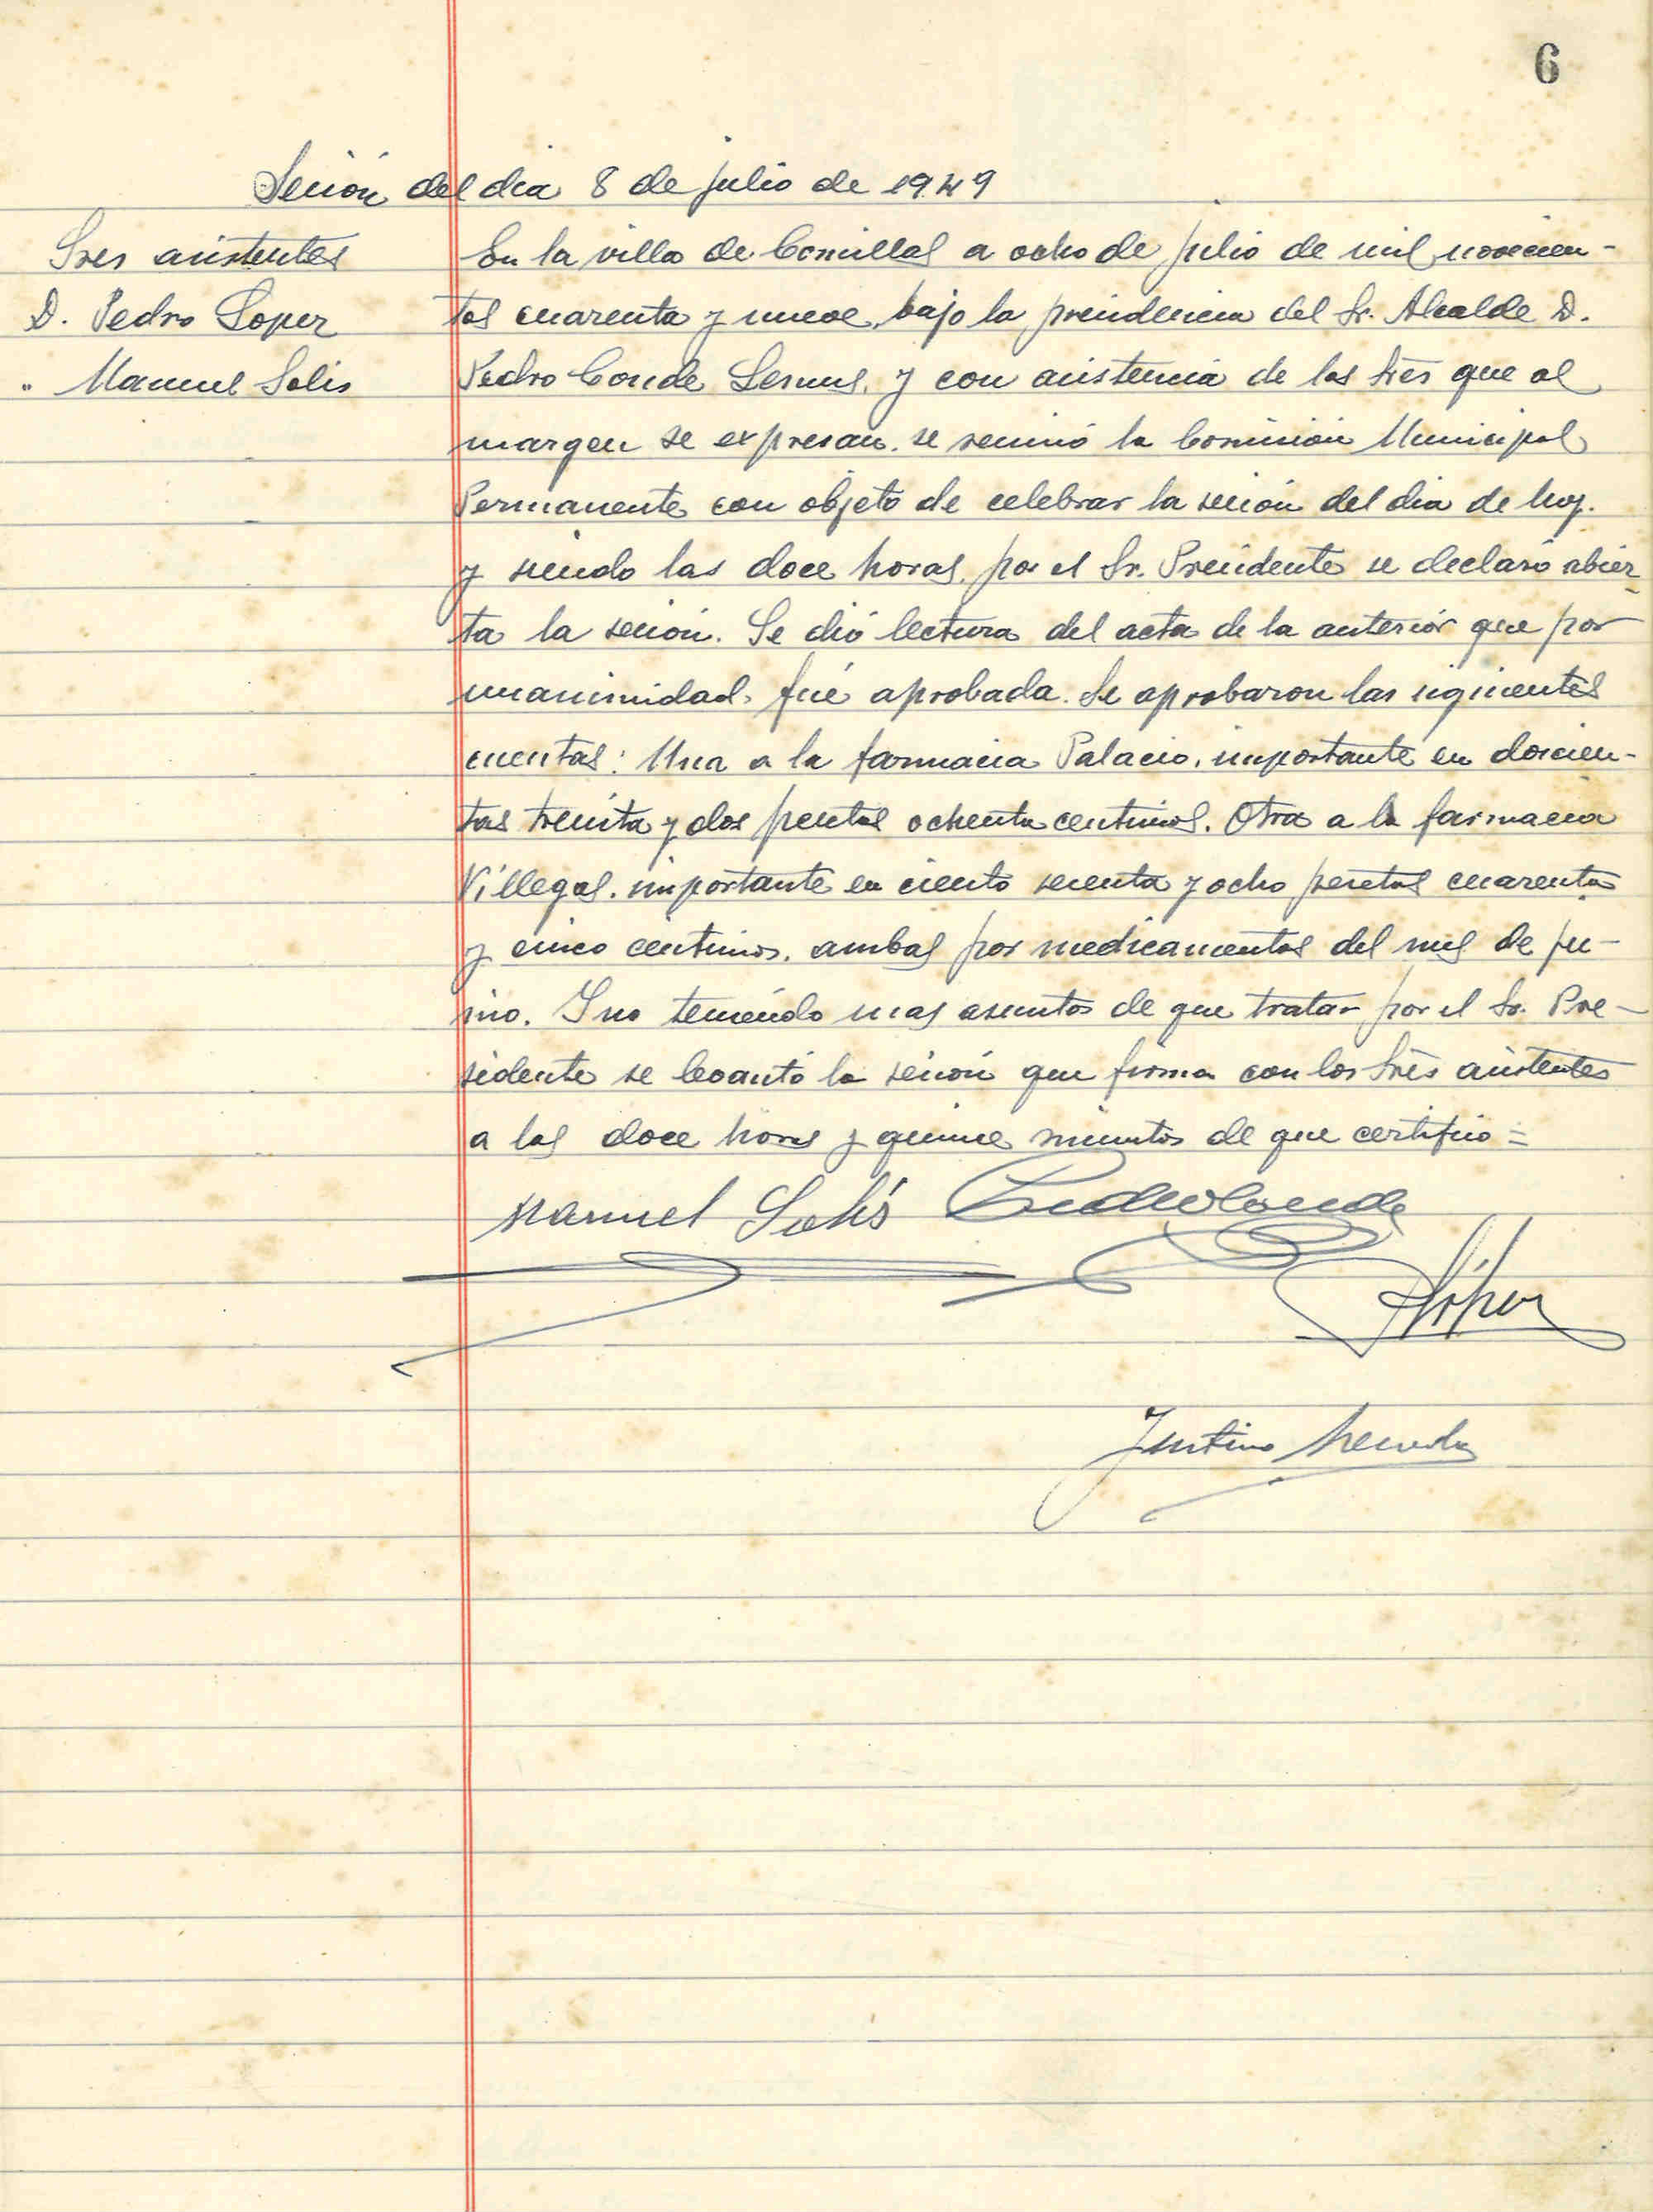 6
Sesión del dia 8 de julio de 1949
Sres asistentes
D. Pedro Lopez
" Manuel Solis
En la villa de Comillas a ocho de julio de mil novecien-
tos cuarenta y nueve, bajo la presidencia del Sr. Alcalde D.
Pedro Conde Lesmes, y con asistencia de los Sres que al
margen se expresan, se reunió la Comisión Municipal
Permanente con objeto de celebrar la sesión del dia de hoy.
y siendo las doce horas, por el Sr. Presidente se declaró abier-
ta la sesión. Se dió lectura del acta de la anterior que por
unanimidad, fué aprobada. Se aprobaron las siguientes
cuentas: Una a la farmacia Palacio, importante en doscien-
tas treinta y dos pesetas ochenta centimos. Otra a la farmacia
Villegas, importante en ciento sesenta y ocho pesetas cuarenta
y cinco centimos, ambas por medicamentos del mes de ju-
nio. Y no teniendo mas asuntos de que tratar por el Sr. Pre-
sidente se levantó la sesión que firma con los Sres asistentes
a las doce horas y quince minutos de que certifico =
Manuel Solís Pedro Conde
PLópez
Justino